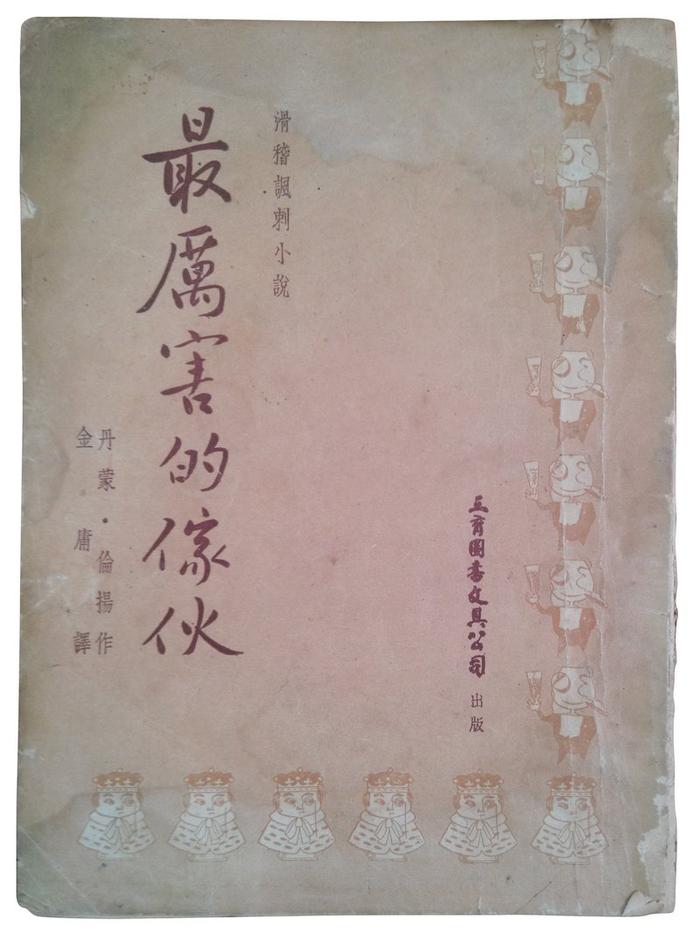 滑稽諷刺小說
最厲害的傢伙
丹蒙·倫揚作
金庸譯
三育圖書文具公司出版